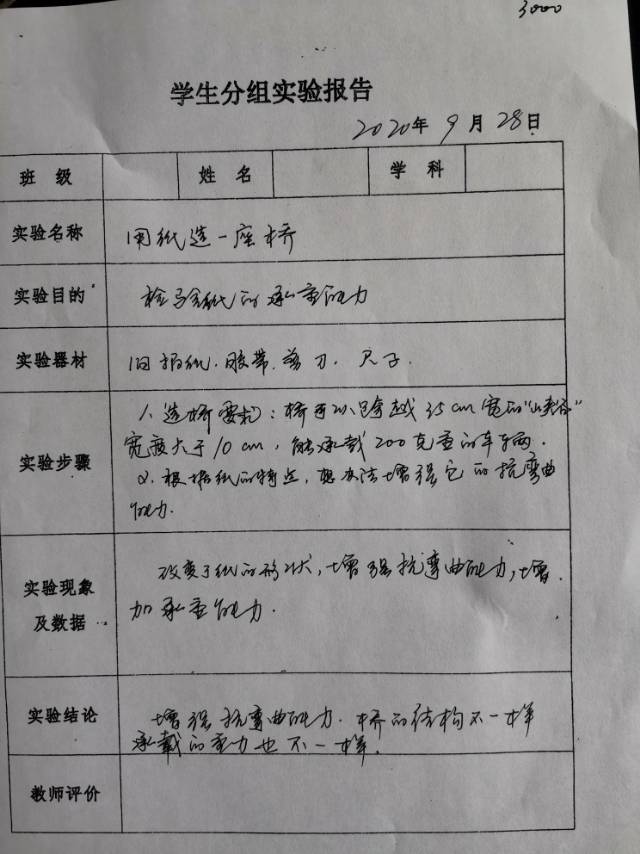 3000
学生分组实验报告
2020年9月28日
班 级 姓 名 学 科
实验名称 用纸造一座桥
实验目的 检验纸的承重能力
实验器材 旧报纸.胶带.剪刀.尺子.
实验步骤
1.造桥要求:桥可以跨越35cm宽的“山谷”
宽度大于10cm,能承载200克重的车辆.
2.根据纸的特点,想办法增强它的抗弯曲
能力.
实验现象
及数据
改变了纸的形状,增强抗弯曲能力,增
加承重能力.
实验结论
增强抗弯曲能力.桥的结构不一样
承载的重力也不一样.
教师评价